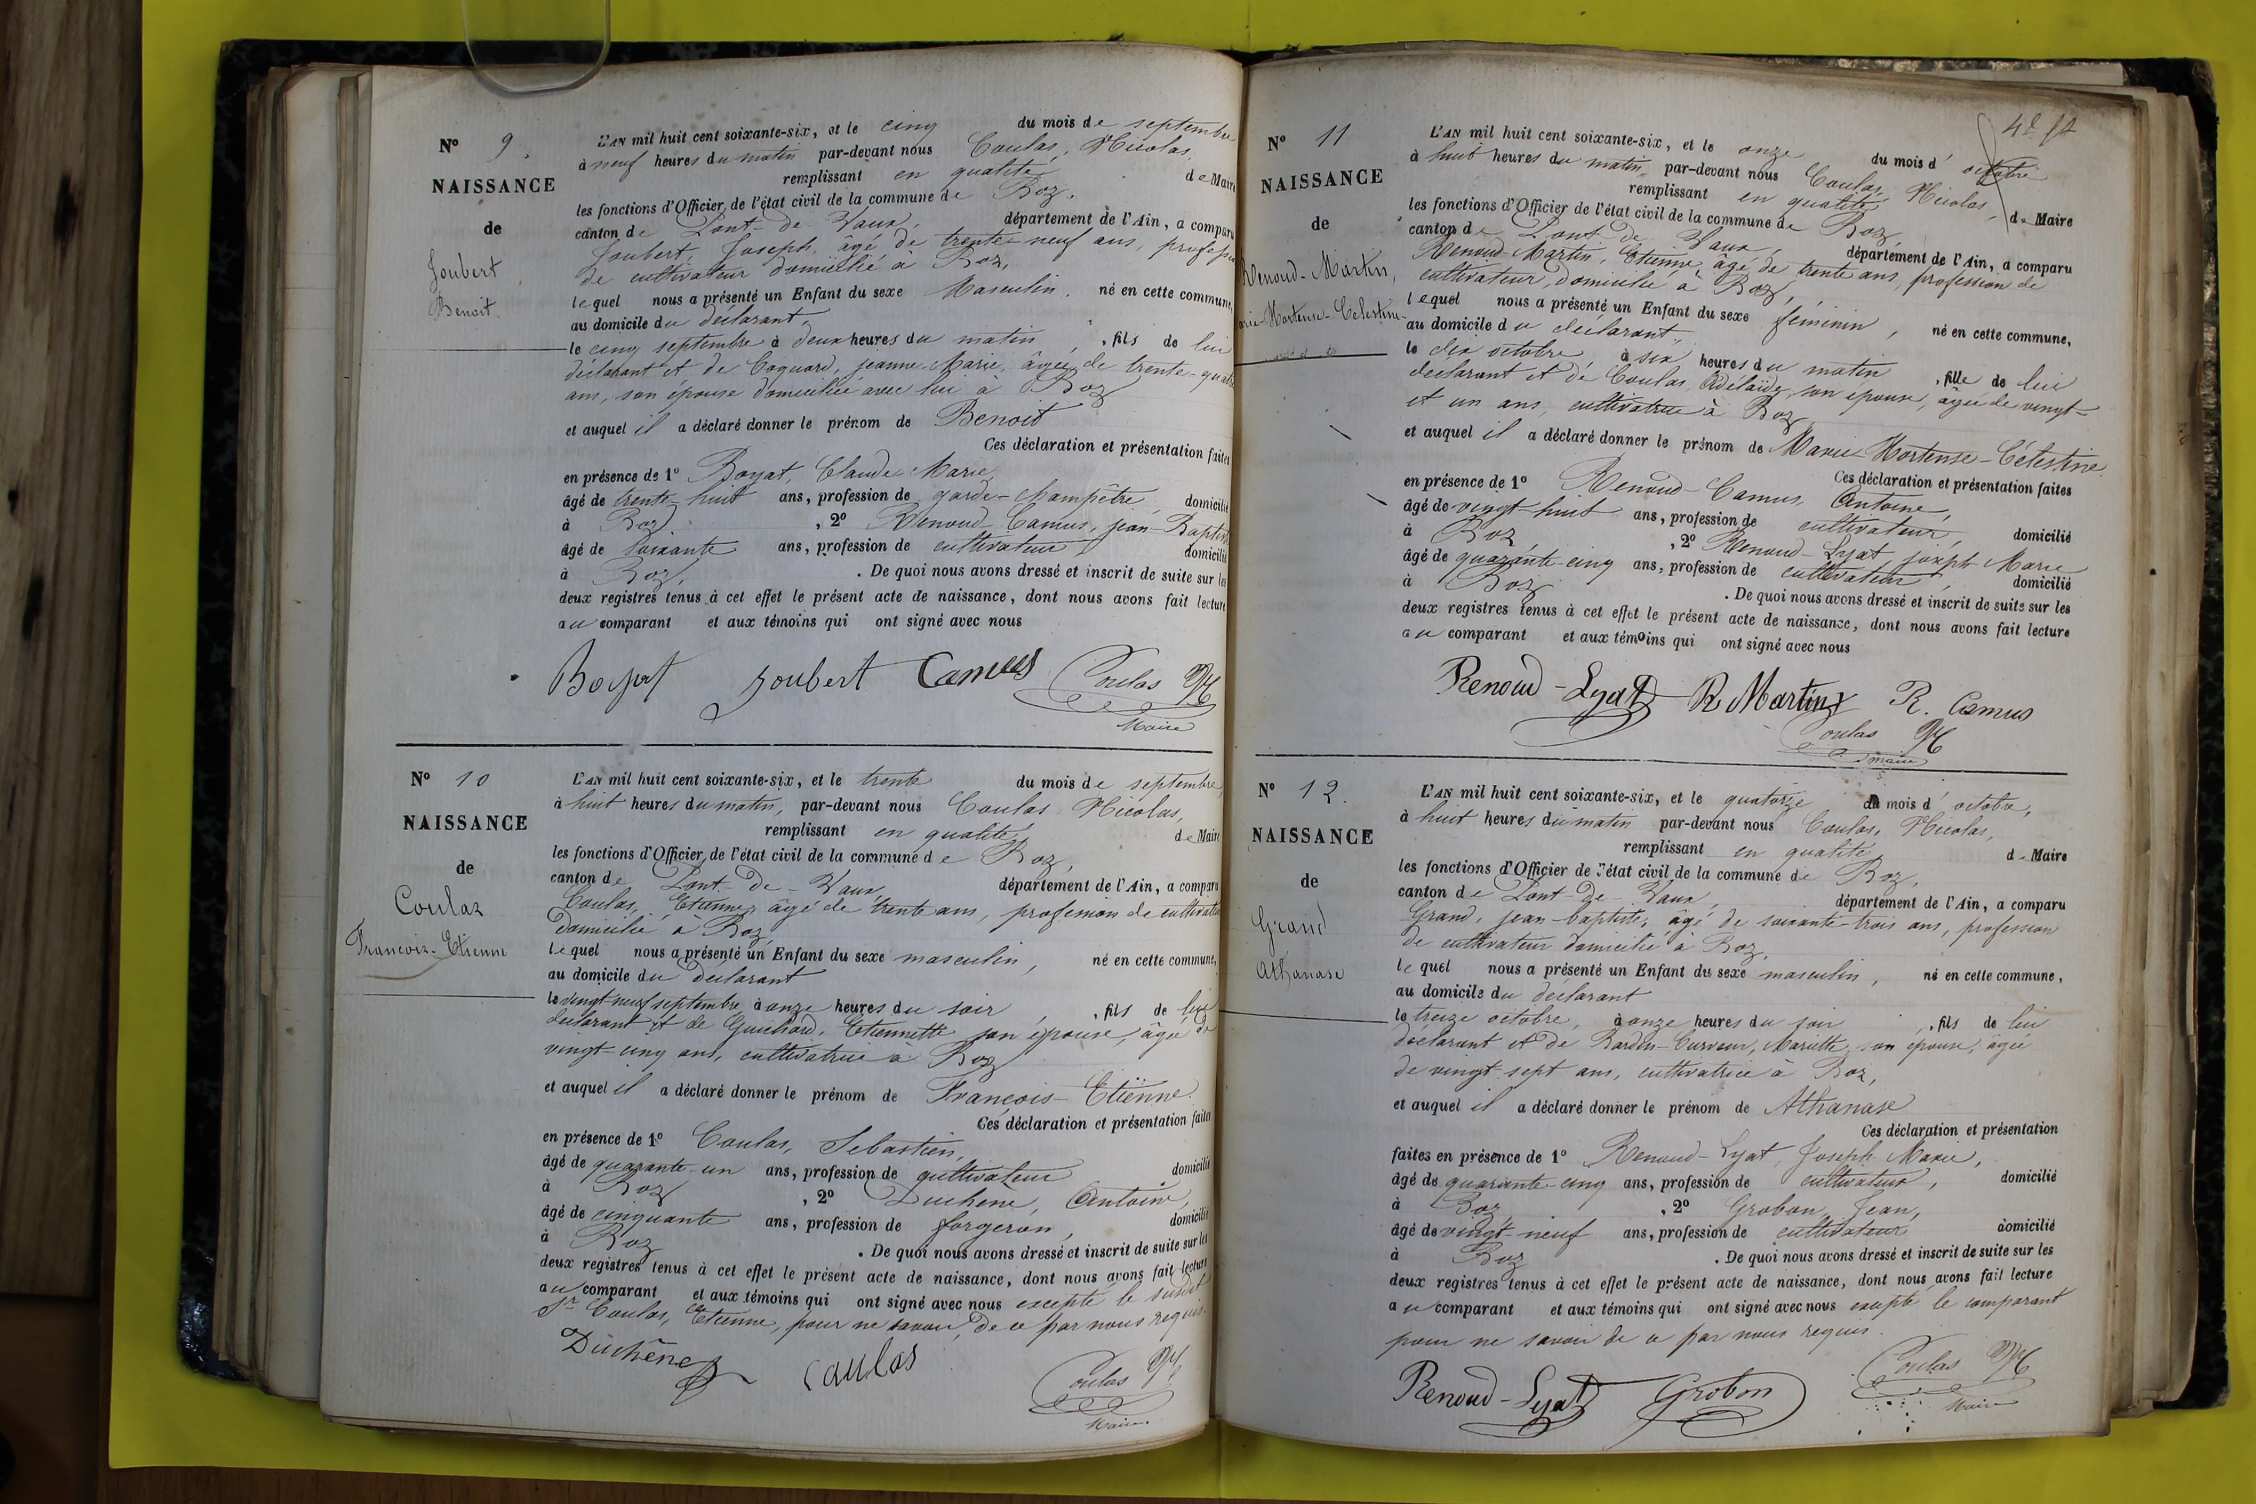 N° 9.
NAISSANCE
de
Joubert
Benoit.
L'AN mil huit cent soixante-six, et le cinq du mois de septembre
à neuf heures du matin par-devant nous Coulas, Nicolas,
remplissant en qualité de Maire
les fonctions d'Officier de l'état civil de la commune de Boz,
canton de Pont-de-Vaux, département de l'Ain, a comparu
Joubert, Joseph, âgé de trente-neuf ans, profession
de cultivateur domicilié à Boz,
lequel nous a présenté un Enfant du sexe Masculin, né en cette commune,
au domicile du déclarant
le cinq septembre à deux heures du matin, fils de lui
déclarant et de Coquard, jeanne-Marie, âgée de trente-quatre
ans, son épouse domiciliée avec lui à Boz
et auquel il a déclaré donner le prénom de Benoit
Ces déclaration et présentation faites
en présence de 1° Boyat, Claude-Marie
âgé de trente-huit ans, profession de garde-champêtre, domicilié
à Boz, 2° Renoud-Camus, jean-Baptiste
âgé de soixante ans, profession de cultivateur domicilié
à Boz, . De quoi nous avons dressé et inscrit de suite sur les
deux registres tenus à cet effet le présent acte de naissance, dont nous avons fait lecture
au comparant et aux témoins qui ont signé avec nous
Boyat Joubert Camus Coulas N
Maire
N° 10
NAISSANCE
de
Coulas
François-Etienne
L'AN mil huit cent soixante-six, et le trente du mois de septembre,
à huit heures du matin, par-devant nous Coulas Nicolas,
remplissant en qualité de Maire
les fonctions d'Officier de l'état civil de la commune de Boz,
canton de Pont-de-Vaux département de l'Ain, a comparu
Coulas, Etienne, âgé de trente ans, profession de cultivateur
domicilié à Boz,
lequel nous a présenté un Enfant du sexe masculin, né en cette commune,
au domicile du déclarant
le vingt-neuf septembre à onze heures du soir, fils de lui
déclarant et de Guichard, Etiennette son épouse, âgée de
vingt-cinq ans, cultivatrice à Boz
et auquel il a déclaré donner le prénom de François-Etienne.
Ces déclaration et présentation faites
en présence de 1° Coulas, Sébastien,
âgé de quarante-un ans, profession de cultivateur domicilié
à Boz, 2° Duchêne, Antoine,
âgé de cinquante ans, profession de forgeron, domicilié
à Boz . De quoi nous avons dressé et inscrit de suite sur les
deux registres tenus à cet effet le présent acte de naissance, dont nous avons fait lecture
au comparant et aux témoins qui ont signé avec nous excepté le susdit
Sr Coulas, Etienne, pour ne savoir, de ce par nous requis.
Duchêne Coulas Coulas N
Maire
N° 11
NAISSANCE
de
Renoud-Martin,
Marie-Hortense-Célestine
L'AN mil huit cent soixante-six, et le onze du mois d'octobre
à huit heures du matin, par-devant nous Coulas, Nicolas,
remplissant en qualité de Maire
les fonctions d'Officier de l'état civil de la commune de Boz
canton de Pont-de-Vaux, département de l'Ain, a comparu
Renoud-Martin, Etienne, âgé de trente ans, profession de
cultivateur, domicilié à Boz,
lequel nous a présenté un Enfant du sexe féminin, né en cette commune,
au domicile du déclarant,
le dix octobre à six heures du matin, fille de lui
déclarant et de Coulas, Adélaïde, son épouse, âgée de vingt-
et un ans, cultivatrice à Boz
et auquel il a déclaré donner le prénom de Marie-Hortense-Célestine
Ces déclaration et présentation faites
en présence de 1° Renoud-Camus, Antoine,
âgé de vingt-huit ans, profession de cultivateur, domicilié
à Boz, 2° Renoud-Lyat joseph Marie
âgé de quarante-cinq ans, profession de cultivateur, domicilié
à Boz . De quoi nous avons dressé et inscrit de suite sur les
deux registres tenus à cet effet le présent acte de naissance, dont nous avons fait lecture
au comparant et aux témoins qui ont signé avec nous
Renoud-Lyat R Martin R. Camus
Coulas N
maire
N° 12.
NAISSANCE
de
Grand
Athanase
L'AN mil huit cent soixante-six, et le quatorze du mois d'octobre,
à huit heures du matin par-devant nous Coulas, Nicolas,
remplissant en qualité de Maire
les fonctions d'Officier de l'état civil de la commune de Boz,
canton de Pont-de-Vaux, département de l'Ain, a comparu
Grand, jean-baptiste, âgé de soixante-trois ans, profession
de cultivateur domicilié à Boz,
lequel nous a présenté un Enfant du sexe masculin, né en cette commune,
au domicile du déclarant
le treize octobre, à onze heures du soir, fils de lui
déclarant et de Bardin-Curveur, Mariette son épouse, âgée
de vingt-sept ans, cultivatrice à Boz,
et auquel il a déclaré donner le prénom de Athanase
Ces déclaration et présentation
faites en présence de 1° Renoud-Lyat, Joseph Marie,
âgé de quarante-cinq ans, profession de cultivateur, domicilié
à Boz, 2° Grobon, Jean,
âgé de vingt-neuf ans, profession de cultivateur domicilié
à Boz . De quoi nous avons dressé et inscrit de suite sur les
deux registres tenus à cet effet le présent acte de naissance, dont nous avons fait lecture
au comparant et aux témoins qui ont signé avec nous excepté le comparant
pour ne savoir de ce par nous requis.
Renoud-Lyat Grobon Coulas N
Maire